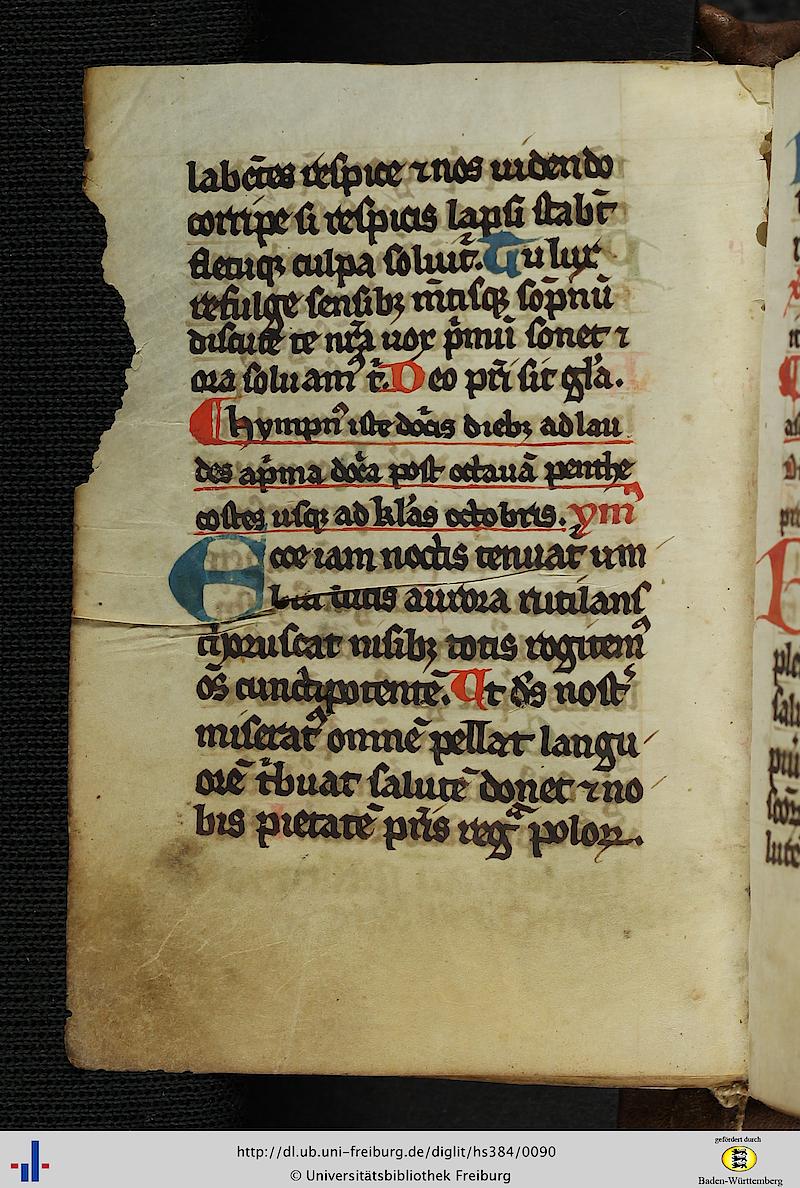 labētes respice ⁊ nos uidendo
corripe si respicis lapsi stabūt
fletuqꝫ culpa soluit̄. Tu lux
refulge sensibꝫ mētisqꝫ sōpnū
discute te nr̄a uox p̄mū sonet ⁊
ora soluamꝰ t̄. Deo pr̄i sit gl̄a.
hympnꝰ iste dōicis diebꝫ ad lau
des a p̄ma dōica post octauā penthe
costes usqꝫ ad kl̄as octobris. ymꝰ
Ecce iam noctis tenuat᷑ um
bra lucis aurora rutilans
choruscat nisibꝫ totis rogitemꝰ
oēs cunctipotentē. Ut d̄s nost᷑
miseratꝰ omnē pellat langu
orē t᷑buat salutē donet ⁊ no
bis pietate pr̄is regna poloꝝ.
http://dl.ub.uni-freiburg.de/diglit/hs384/0090
© Universitätsbibliothek Freiburg
gefördert durch
Baden-Württemberg